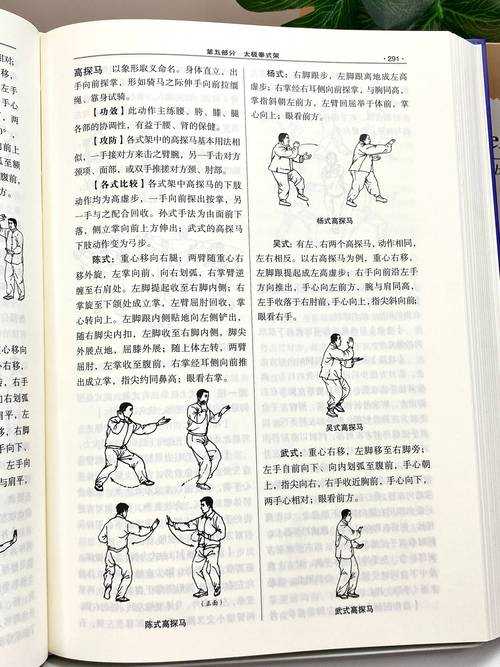 第五部分 太极拳式架
·291·
高探马 以象形取义命名。身体直立，出
手向前探掌，形如骑马之际伸手向前拉缰
绳、靠身试骑。
【功效】此动作主练腰、胯、膝、腿
各部的协调性，有益于腰、肾的保健。
【攻防】各式架中的高探马基本用法相
似，一手接对方来击之臂腕，另一手击对方
颈项、面部，或双手推接对方颈、肘部。
【各式比较】各式架中高探马的下肢
动作均为高虚步，一手向前探出按掌，另
一手与之配合收回。孙式手法为由面前下
落，侧立掌向前上方伸出；武式的高探马
下肢动作变为弓步。
陈式：重心移向右腿；两臂随重心右
移外旋，左掌向前、向右划弧，右掌臂逆
缠至右肩处。左脚提起收至右脚内侧；右
掌旋至下颌处成立掌，左臂屈肘回收，掌
心转向上。左脚跟内侧贴地向左侧铲出，
随右脚尖内扣，左脚收至右脚内侧，脚尖
外展点地，屈膝外展；随上体左转，两臂
屈肘，左掌收至腹前，右掌经耳侧向前推
出成立掌，指尖约同鼻高；眼看右掌。
(正面)
陈式高探马
杨式：右脚跟步，左脚跟离地成左高
虚步；右掌经右耳侧向前探掌，与胸同高，
掌指斜朝左前方，左臂回屈举于体前，掌
心向上；眼看前方。
杨式高探马
吴式：有左、右两个高探马，动作相同，
左右相反。以右高探马为例，重心右移，
左脚跟提起成左高虚步；右手向前沿左手
方向推出，手心向左前方，腕与肩同高，
左手收落于右肘前，手心向上，指尖斜向前；
眼看右手。
吴式高探马
武式：重心右移，左脚移至右脚旁；
左手自前向下、向内划弧至腹前，手心朝
上，指尖向右，右手收近胸前，手心向下，
两手心相对；眼看前方。
武式高探马